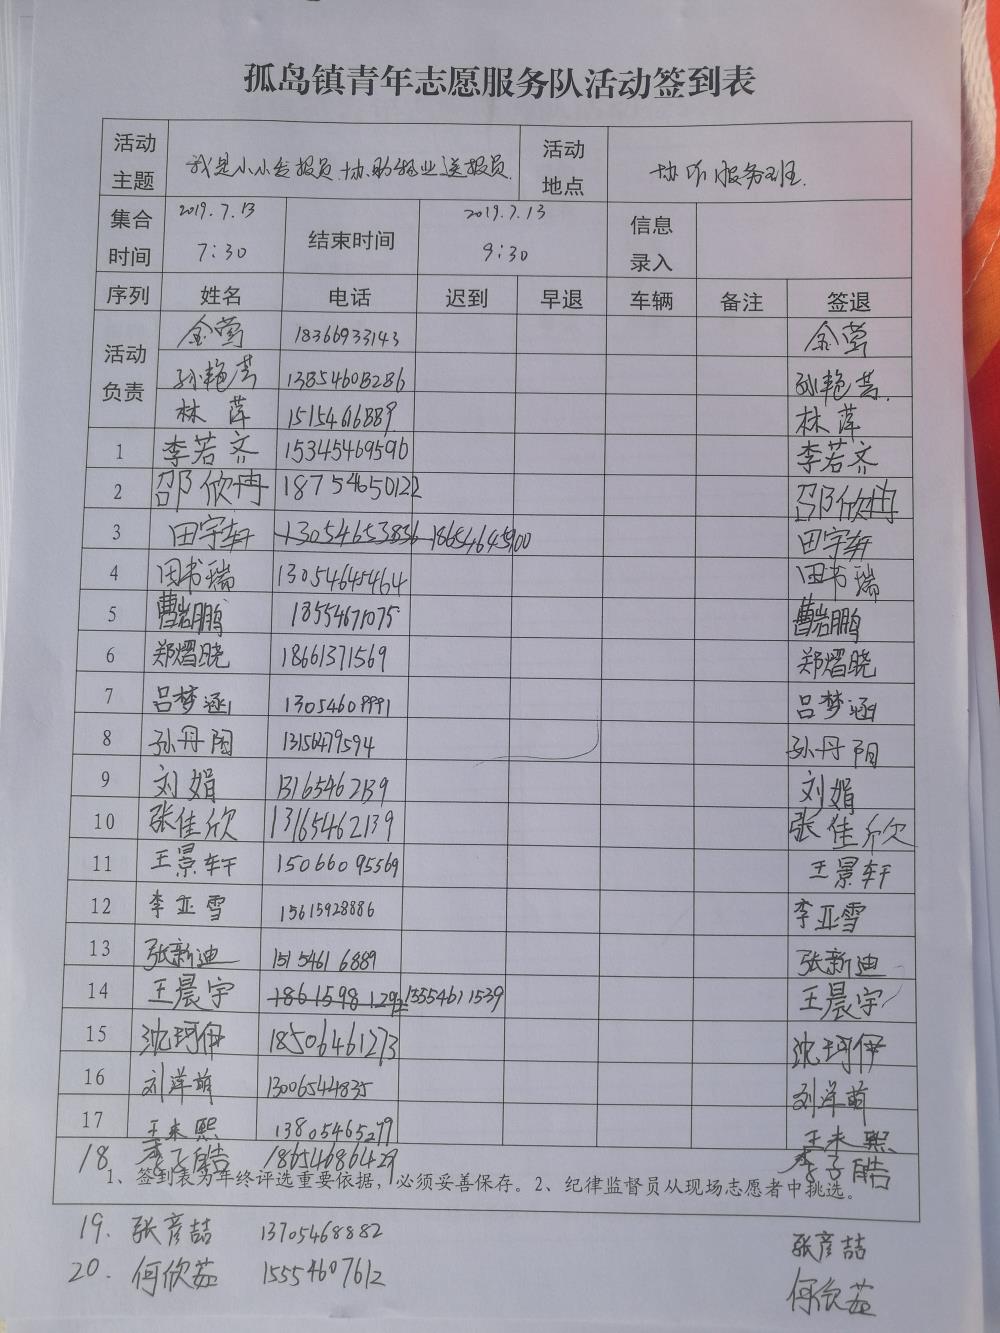 孤岛镇青年志愿服务队活动签到表
活动主题 我是小小送报员.协助物业送报员. 活动地点 物业服务班.
集合时间 2019.7.13 7:30 结束时间 2019.7.13 9:30 信息录入
序列 姓名 电话 迟到 早退 车辆 备注 签退
活动负责 金莺 18366933143 金莺
孙艳芸 13854608286 孙艳芸.
林萍 15154616889 林萍
1 李若齐 15345469590 李若齐
2 邵欣冉 18754650122 邵欣冉
3 田宇轩 13054653836 18654645900 田宇轩
4 田书瑞 13054645464 田书瑞
5 曹岩鹏 18554671075 曹岩鹏
6 郑熠晓 18661371569 郑熠晓
7 吕梦涵 13054609991 吕梦涵
8 孙丹阳 13156479594 孙丹阳
9 刘娟 13165462139 刘娟
10 张佳欣 13165462139 张佳欣
11 王景轩 15066095569 王景轩
12 李亚雪 15615928886 李亚雪
13 张新迪 15154616889 张新迪
14 王晨宇 15554611539 王晨宇
15 沈珂伊 18506461273 沈珂伊
16 刘洋萌 13006544835 刘洋萌
17 王未熙 13805465279 王未熙
18. 李子皓 18654686429 李子皓
1、签到表为年终评选重要依据，必须妥善保存。2、纪律监督员从现场志愿者中挑选。
19. 张彦喆 13705468882 张彦喆
20. 何欣茹 15554607612 何欣茹